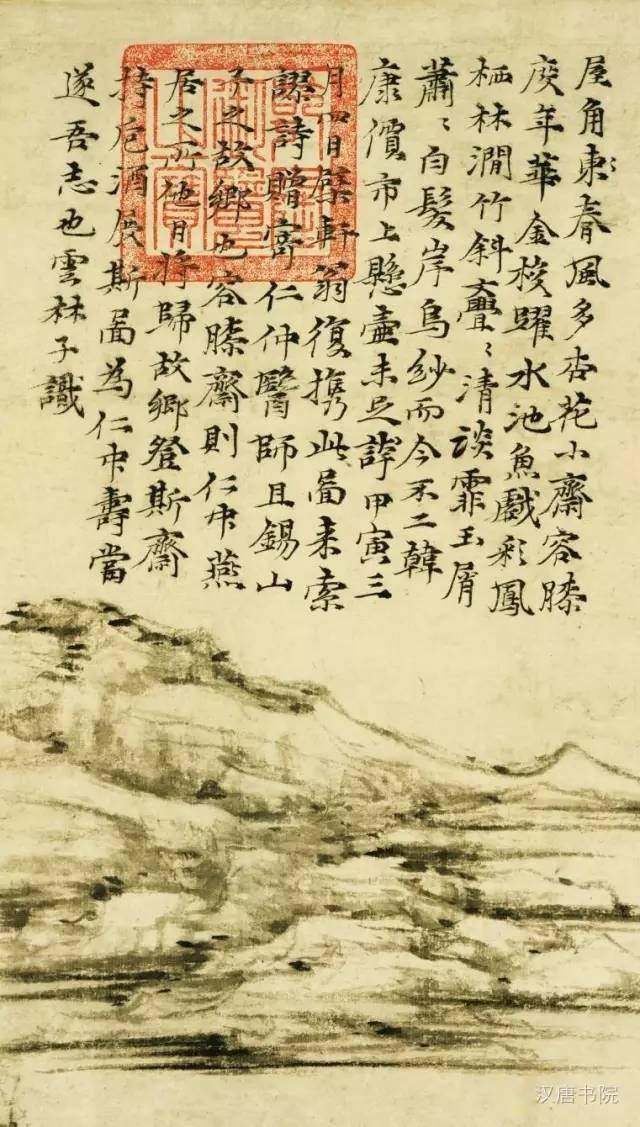 屋角東春風多杏花小齋容膝
度年華金梭躍水池魚戲彩鳳
栖林澗竹斜亹〻清談霏玉屑
蕭〻白髮岸烏紗而今不二韓
康價市上懸壺未足誇甲寅三
月四日檗軒翁復携此啚来索
謬詩贈寄仁仲醫師且錫山
予之故鄉也容膝齋則仁中燕
居之所他日將歸故鄉登斯齋
持卮酒展斯啚為仁中壽當
遂吾志也雲林子識
汉唐书院